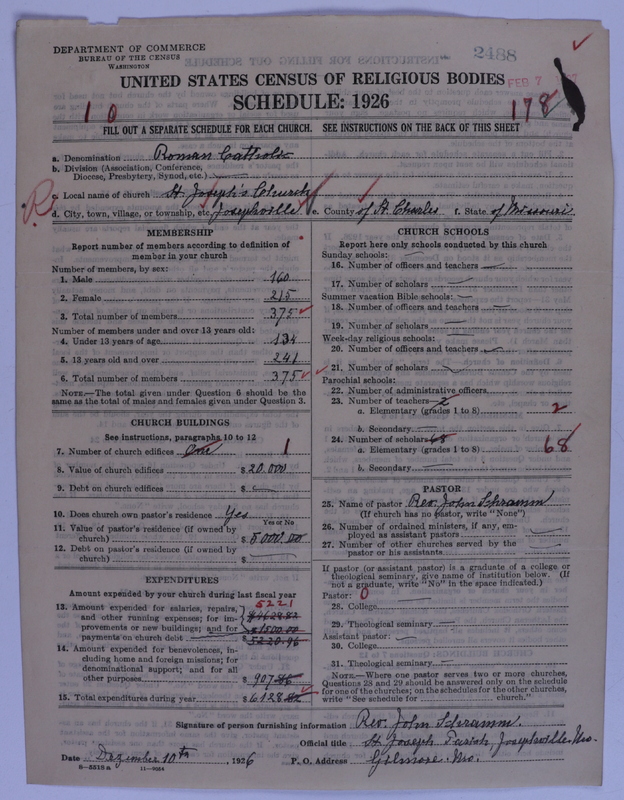 DEPARTMENT OF COMMERCE
BUREAU OF THE CENSUS
WASHINGTON
2488
UNITED STATES CENSUS OF RELIGIOUS BODIES
FEB 7
SCHEDULE: 1926
1 0
178
FILL OUT A SEPARATE SCHEDULE FOR EACH CHURCH. SEE INSTRUCTIONS ON THE BACK OF THIS SHEET
a. Denomination Roman Catholic
b. Division (Association, Conference,
Diocese, Presbytery, Synod, etc.)
R
c. Local name of church St Joseph's Church
d. City, town, village, or township, etc. Josephville e. County of St Charles f. State of Missouri
MEMBERSHIP
Report number of members according to definition of
member in your church
Number of members, by sex:
1. Male 160
2. Female 215
3. Total number of members 375
Number of members under and over 13 years old:
4. Under 13 years of age 134
5. 13 years old and over 241
6. Total number of members 375
NOTE.—The total given under Question 6 should be the
same as the total of males and females given under Question 3.
CHURCH BUILDINGS
See instructions, paragraphs 10 to 12
7. Number of church edifices One 1
8. Value of church edifices $20.000
9. Debt on church edifices $
10. Does church own pastor's residence Yes
Yes or No
11. Value of pastor's residence (if owned by
church) $5000.00
12. Debt on pastor's residence (if owned by
church) $
EXPENDITURES
Amount expended by your church during last fiscal year
5221
13. Amount expended for salaries, repairs,
and other running expenses; for im-
provements or new buildings; and for
payments on church debt $1500.00
$5220.96
14. Amount expended for benevolences, in-
cluding home and foreign missions; for
denominational support; and for all
other purposes $907
15. Total expenditures during year $6128
CHURCH SCHOOLS
Report here only schools conducted by this church
Sunday schools:
16. Number of officers and teachers
17. Number of scholars
Summer vacation Bible schools:
18. Number of officers and teachers
19. Number of scholars
Week-day religious schools:
20. Number of officers and teachers
21. Number of scholars
Parochial schools:
22. Number of administrative officers
23. Number of teachers 2
a. Elementary (grades 1 to 8) 2
b. Secondary
24. Number of scholars 68
a. Elementary (grades 1 to 8) 68
b. Secondary
PASTOR
25. Name of pastor Rev. John Schramm
(If church has no pastor, write "None")
26. Number of ordained ministers, if any, em-
ployed as assistant pastors
27. Number of other churches served by the
pastor or his assistants
If pastor (or assistant pastor) is a graduate of a college or
theological seminary, give name of institution below. (If
not a graduate, write "No" in the space indicated.)
Pastor: 0
28. College
29. Theological seminary
Assistant pastor:
30. College
31. Theological seminary
NOTE.—Where one pastor serves two or more churches,
Questions 28 and 29 should be answered only on the schedule
for one of the churches; on the schedules for the other churches,
write "See schedule for church."
Signature of person furnishing information Rev. John Schramm
Official title St Joseph Parish, Josephville, Mo.
Date Dezember 10th, 1926 P. O. Address Gilmore Mo.
8—5318 a 11—9564